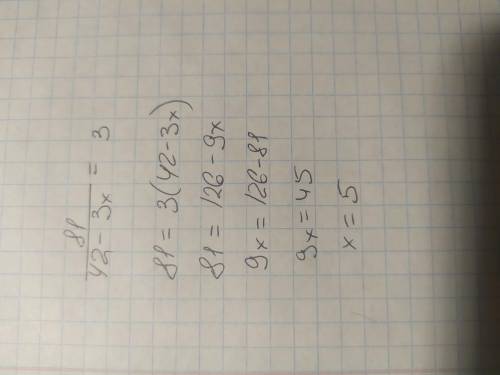 81
42 - 3x = 3
81 = 3(42 - 3x)
81 = 126 - 9x
9x = 126 - 81
9x = 45
x = 5